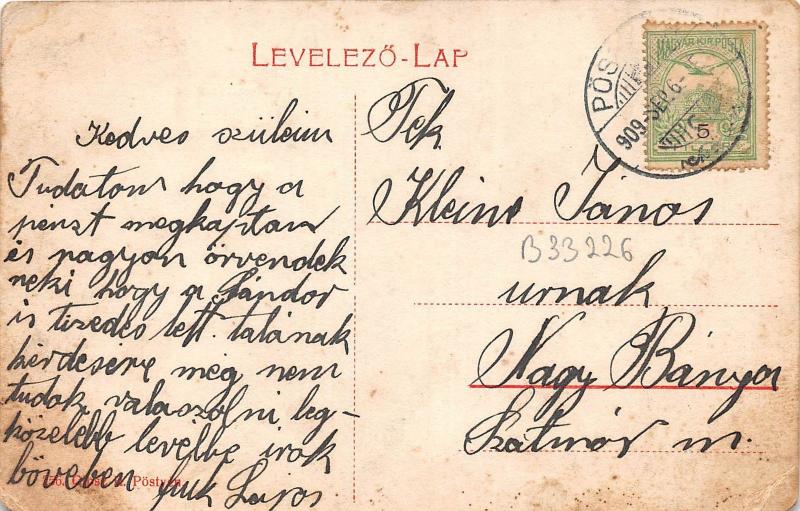 LEVELEZŐ-LAP
MAGYAR KIR. POSTA
5
PÖS
909 SEP. 6
Kedves szüleim
Tudatom hogy a
pénzt megkaptam
és nagyon örvendek
neki hogy a Sándor
is tizedes lett. talának
kérdésére még nem
tudok válaszolni leg-
közelebb levélbe irok
bővebben fiuk Lajos
Pöstyén
Tek
Kleine János
B33226
urnak
Nagy Bánya
Szatmár m.